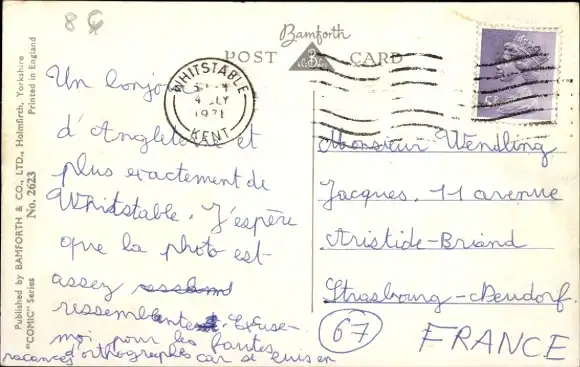 8 €
Bamforth
POST CARD
WHITSTABLE
4 JLY
1971
KENT
Published by BAMFORTH & CO., LTD., Holmfirth, Yorkshire
"COMIC" Series No. 2623 Printed in England
Un bonjour
d'Angleterre et
plus exactement de
Whitstable. J'espère
que la photo est-
assez
ressemblante. Excuse-
moi pour les fautes
d'orthographes car je suis en
vacances
Monsieur Wendling
Jacques, 11 avenue
Aristide-Briand
Strasbourg-Neudorf
67 FRANCE